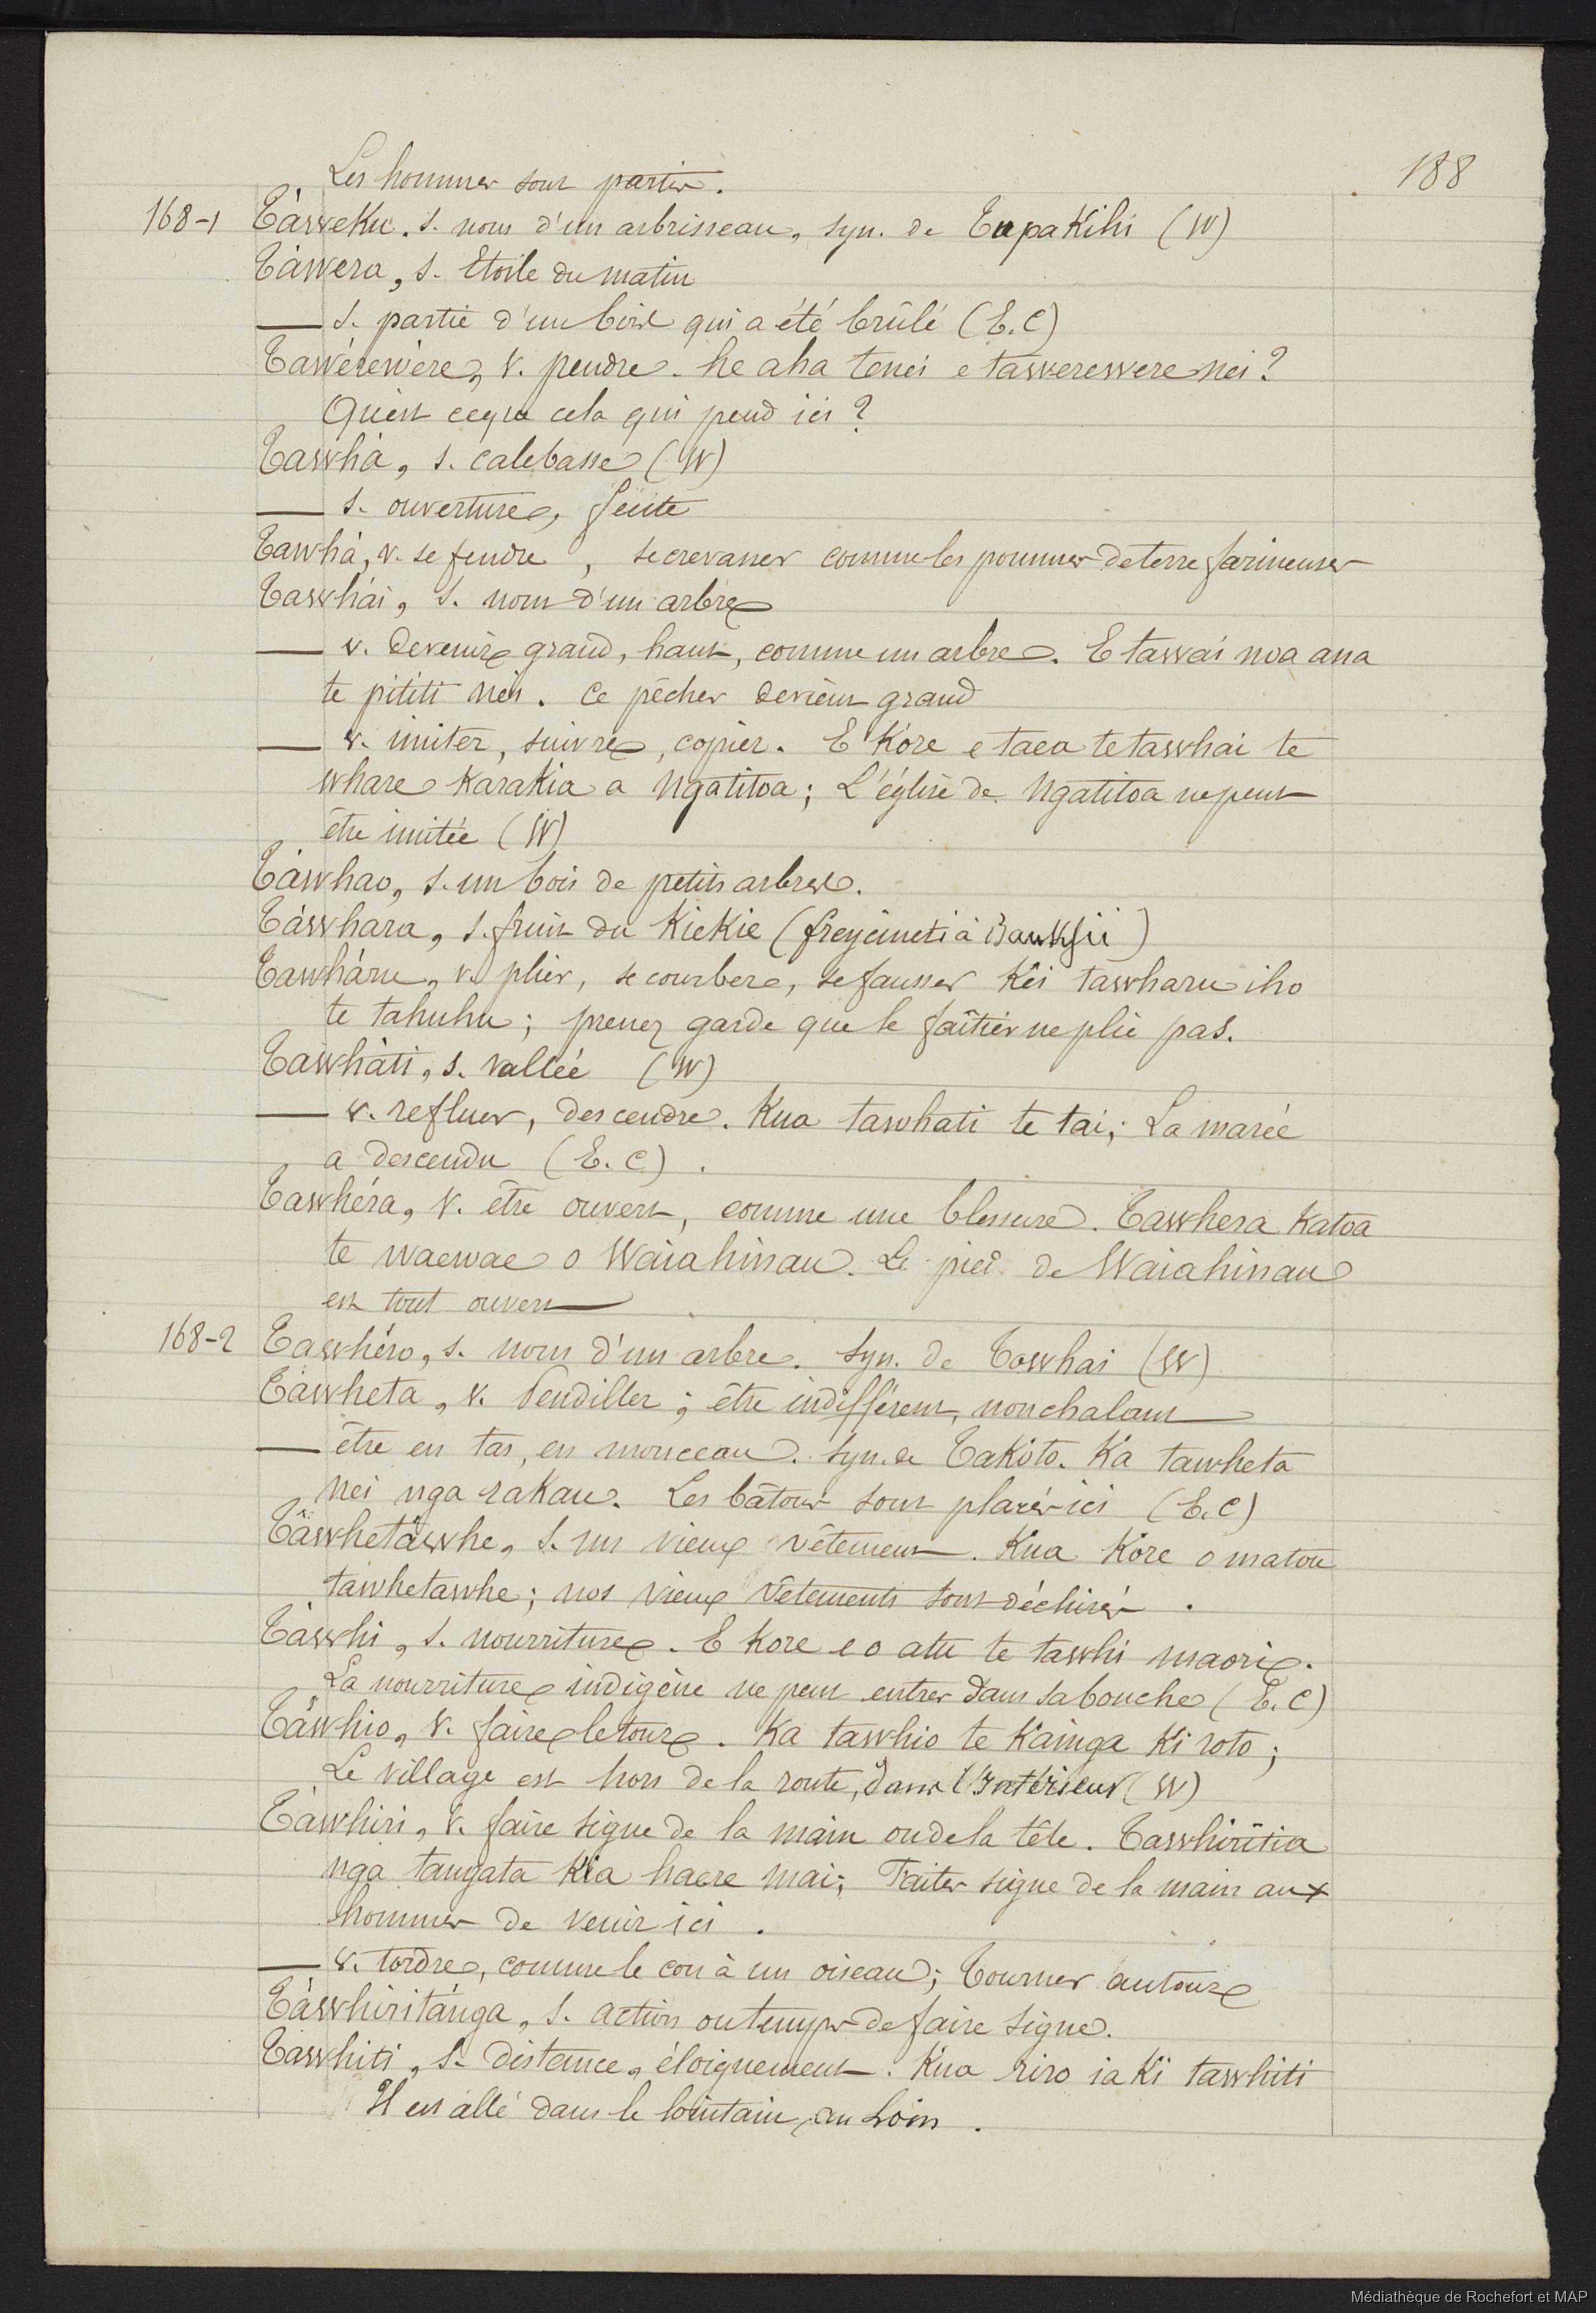 188
Les hommes sont partis.
168-1 Tàweku. s. nom d'un arbrisseau, syn. de Tupakihi (W)
Tàwera, s. Etoile du matin
— s. partie d'un bois qui a été brûlé (E.C)
Tawérewère, v. pendre. he aha tenei e tawerewere nei?
Qu'est ce que cela qui pend ici?
Tawhà, s. calebasse (W)
— s. ouverture, fente
Tawhà, v. se fendre, se crevasser comme les pommes de terre farineuses
Tawhài, s. nom d'un arbre
— v. devenir grand, haut, comme un arbre. E tawai noa ana
te pititi nei. Ce pêcher devient grand
— v. imiter, suivre, copier. E kòre e taea te tawhai te
whare karakia a Ngatitoa; L'église de Ngatitoa ne peut
être imitée (W)
Tàwhao, s. un bois de petits arbres.
Tàwhara, s. fruit du Kiekie (freycineti à Banksii)
Tawhàru, v. plier, se courber, se fausser Kei tawharu iho
te tahuhu; prenez garde que le faîtier ne plie pas.
Tawhàti, s. vallée (W)
— v. refluer, descendre. Kua tawhati te tai; La marée
a descendu (E.C).
Tawhéra, v. être ouvert, comme une blessure. Tawhera katoa
te waewae o Waiahinau. Le pied de Waiahinau
est tout ouvert
168-2 Tawhéro, s. nom d'un arbre. syn. de Towhai (W)
Tàwheta, v. Fendiller; être indifférent, nonchalant
— être en tas, en monceau. syn. de Takoto. Ka tawheta
nei nga rakau. Les bâtons sont placés ici (E.C)
Tàwhetàwhe, s. un vieux vêtement. Kua kore o matou
tawhetawhe; nos vieux vêtements sont déchirés.
Tàwhi, s. nourriture. E kore e o atu te tawhi maori.
La nourriture indigène ne peut entrer dans sa bouche (E.C)
Tàwhio, v. faire le tour. Ka tawhio te kainga ki roto;
Le village est hors de la route, dans l'intérieur (W)
Tàwhiri, v. faire signe de la main ou de la tête. Tawhiritia
nga tangata kia haere mai; Faites signe de la main aux
hommes de venir ici.
— v. tordre, comme le cou à un oiseau; Tourner autour
Tàwhiritànga, s. action ou temps de faire signe.
Tàwhiti, s. distance, éloignement. Kua riro ia ki tawhiti
Il est allé dans le lointain, au loin.
Médiathèque de Rochefort et MAP